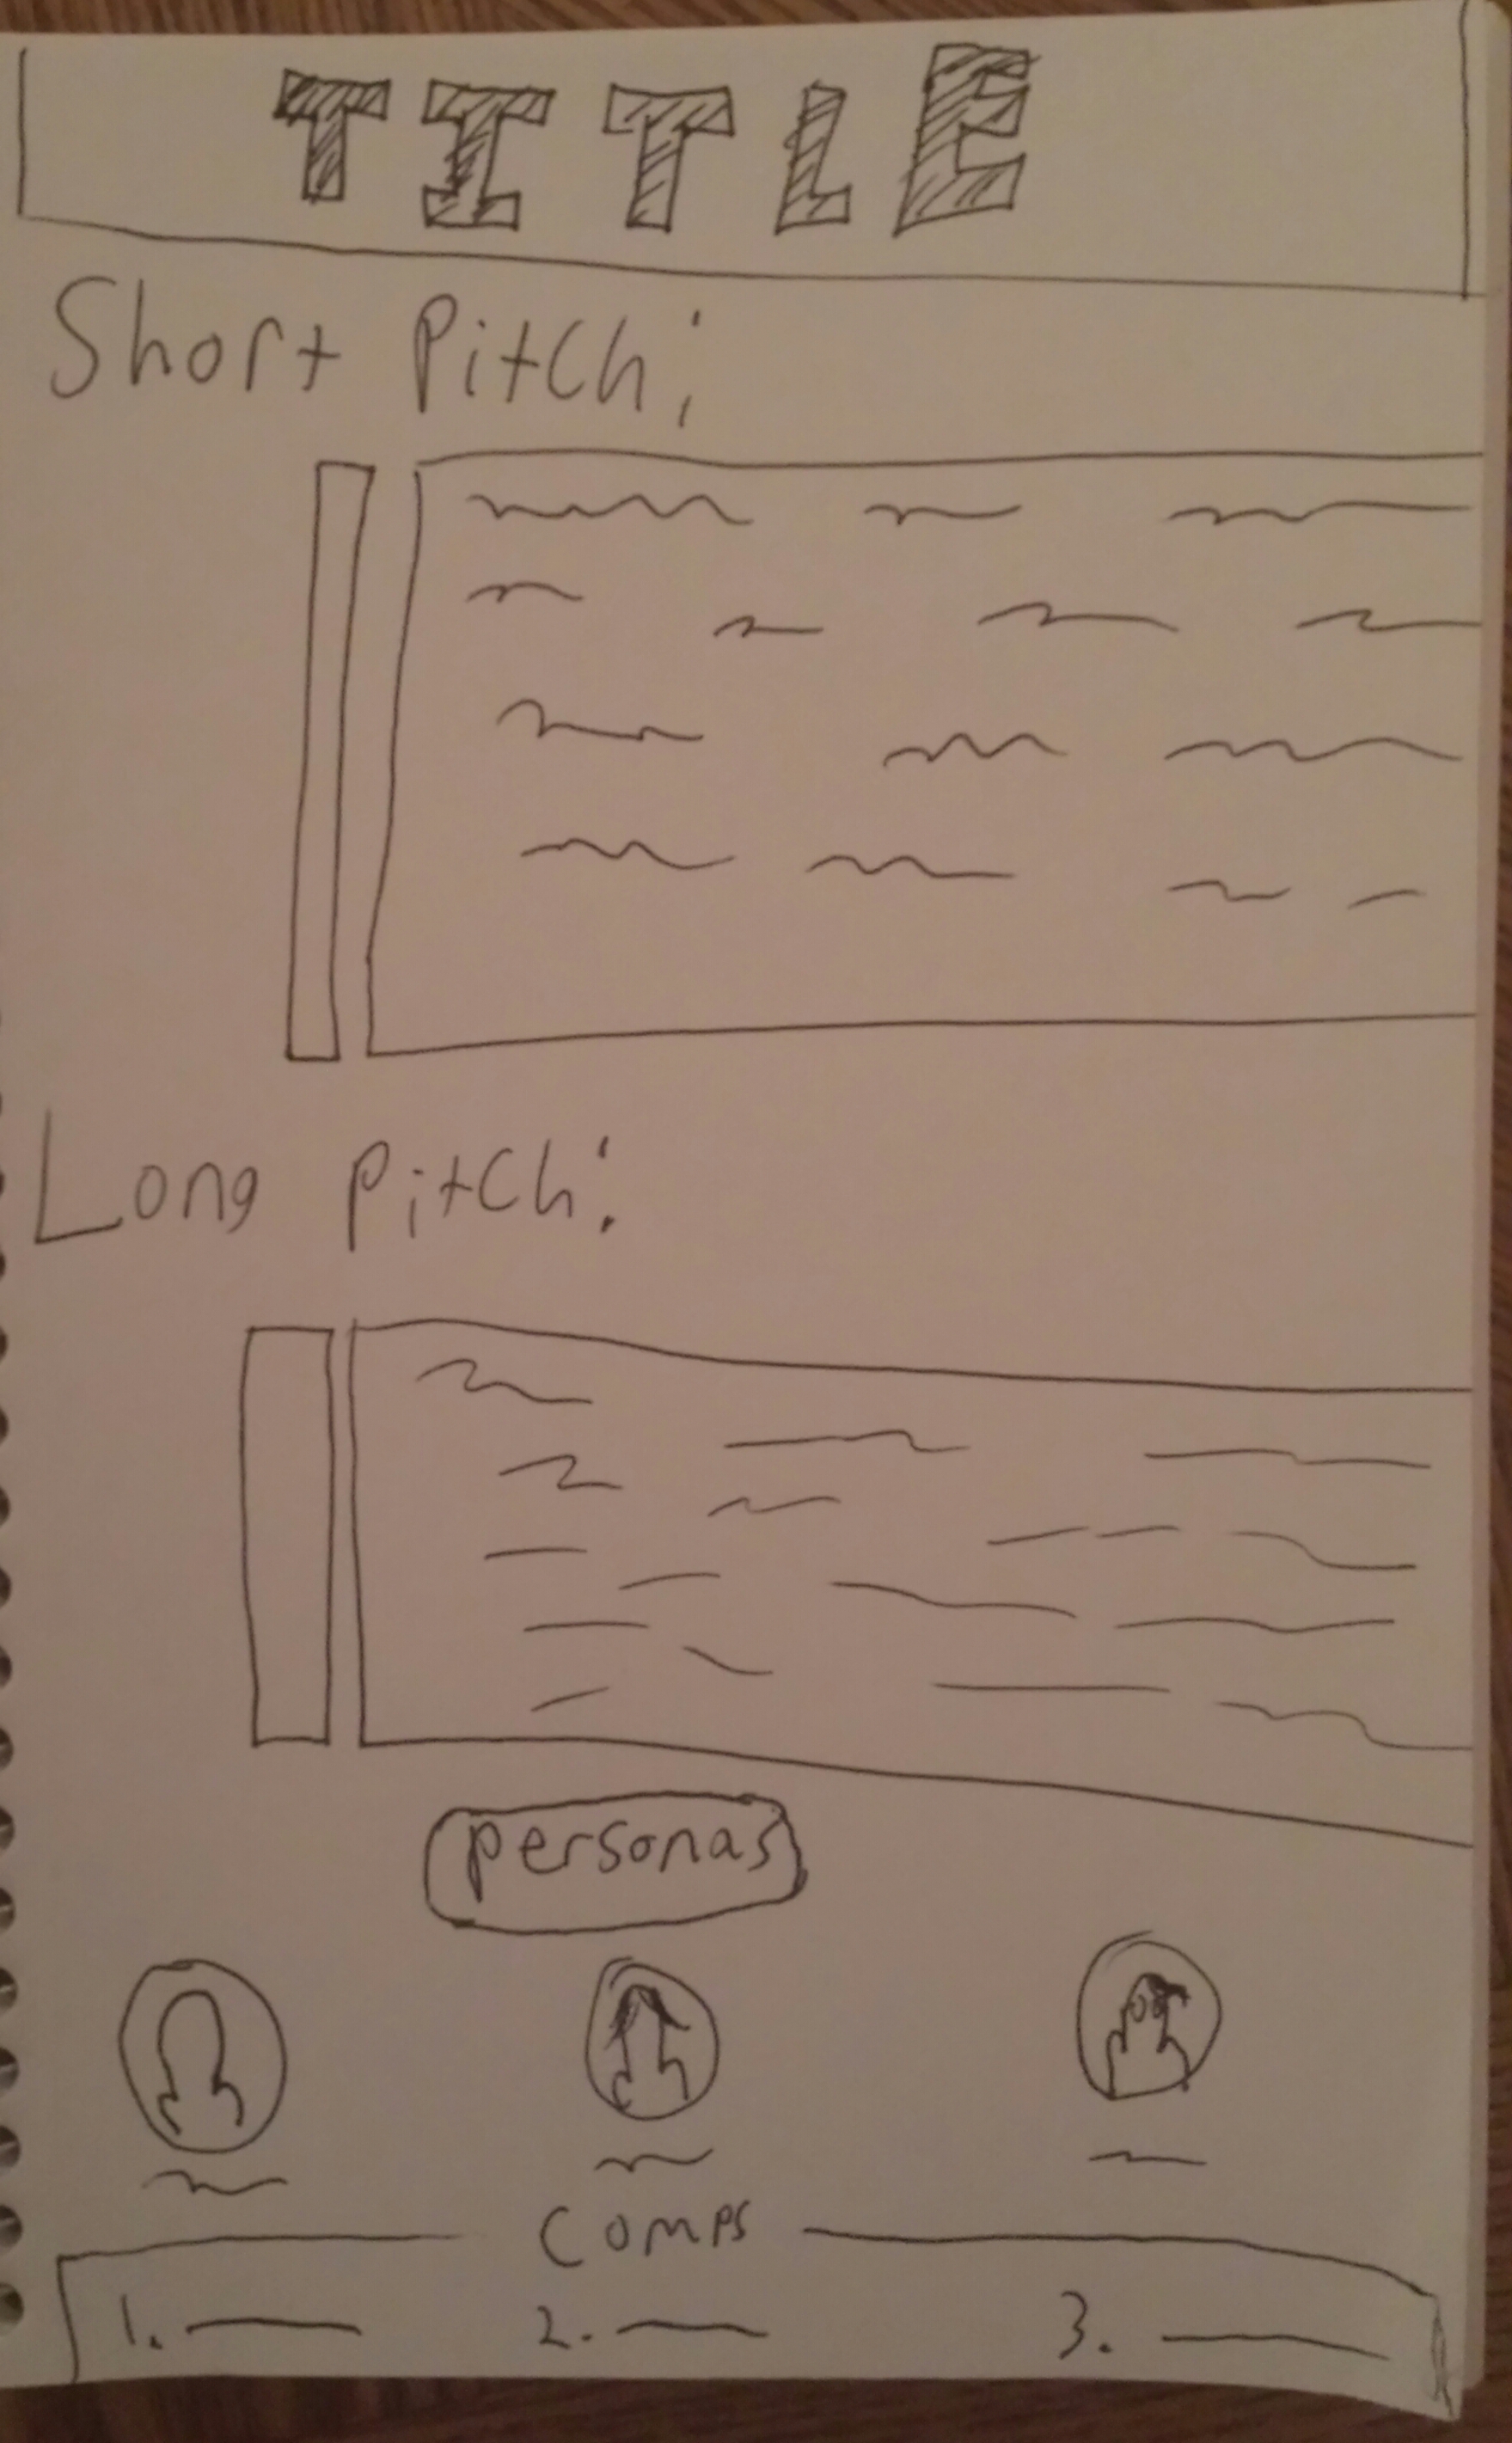 TITLE
Short Pitch:
Long pitch:
personas
Comps
1. 2. 3.